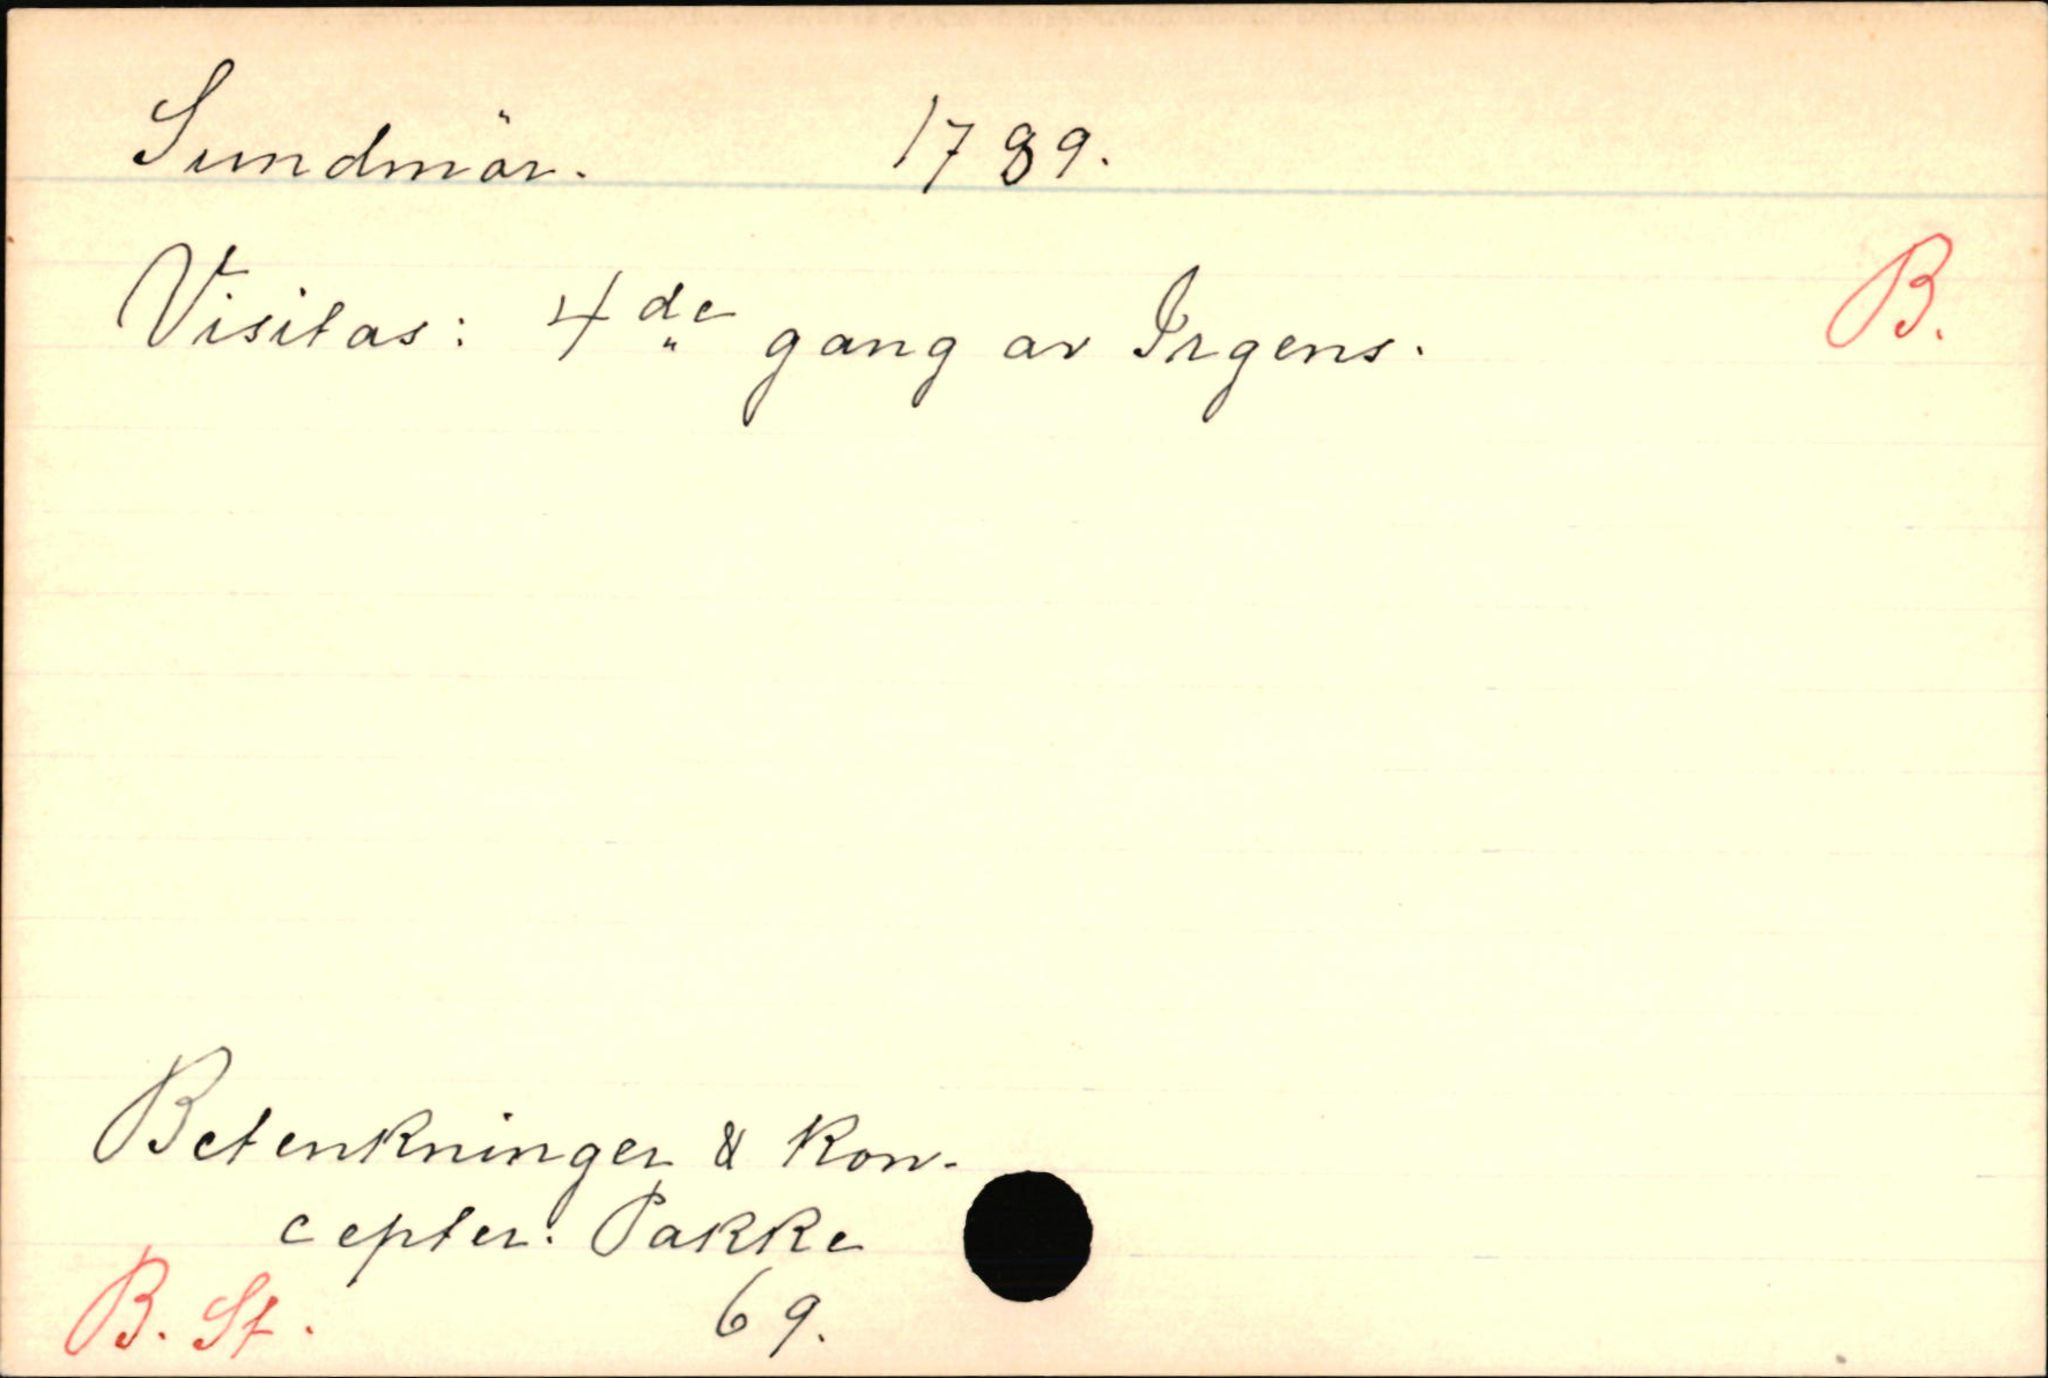 Sundmör. 1789.
Visitas: 4de gang av Irgens. B.
Betenkninger & Kon-
cepter. Pakke
B. St. 69.